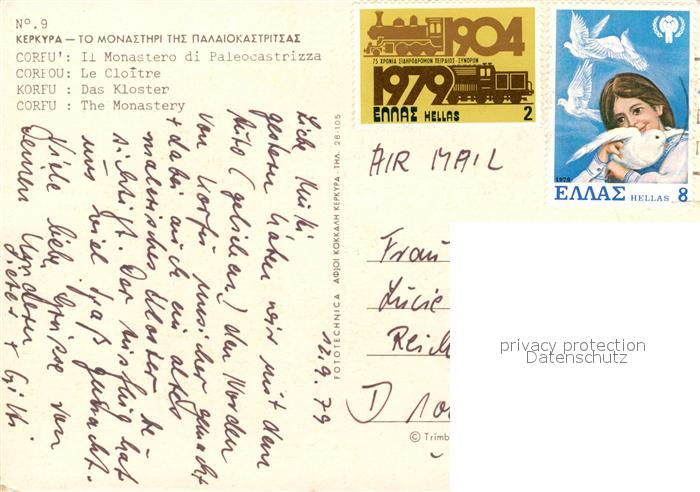 Nº.9
ΚΕΡΚΥΡΑ — ΤΟ ΜΟΝΑΣΤΗΡΙ ΤΗΣ ΠΑΛΑΙΟΚΑΣΤΡΙΤΣΑΣ
CORFU' : Il Monastero di Paleocastrizza
CORFOU: Le Cloître
KORFU : Das Kloster
CORFU : The Monastery
gestern haben wir mit dem
Auto (geliehen) den Norden
von Korfu unsicher gemacht
+ dabei auch ein altes
malerisches Kloster be-
sichtigt. Der Ausflug hat
uns viel Spaß gemacht.
Viele liebe Grüße von
Deinen Kindern
12.9.79
FOTOTECHNICA ΑΦΟΙ ΚΟΚΚΑΛΗ ΚΕΡΚΥΡΑ - ΤΗΛ. 28-105
1904
75 ΧΡΟΝΙΑ ΣΙΔΗΡΟΔΡΟΜΟΝ ΠΕΙΡΑΙΩΣ - ΣΥΝΟΡΩΝ
1979
ΕΛΛΑΣ HELLAS 2
1979
ΕΛΛΑΣ HELLAS 8
AIR MAIL
Frau
Lucie
Reich
D 10
© Trimb
privacy protection
Datenschutz